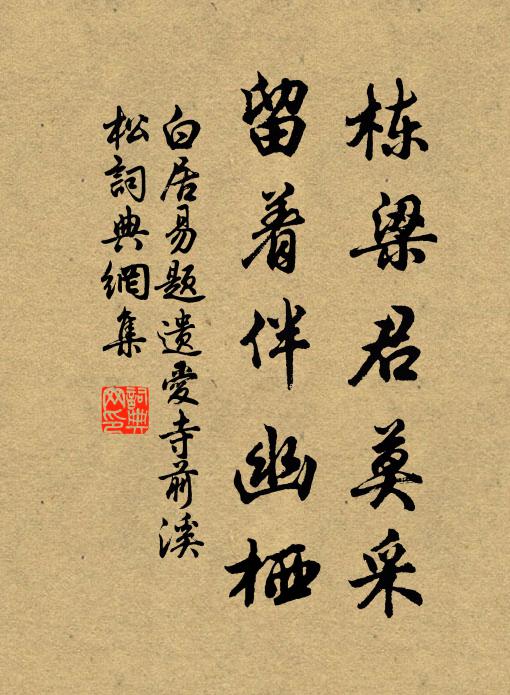 栋梁君莫采
留着伴幽栖
白居易题遗爱寺前溪
松詞典網集
詞典
网印